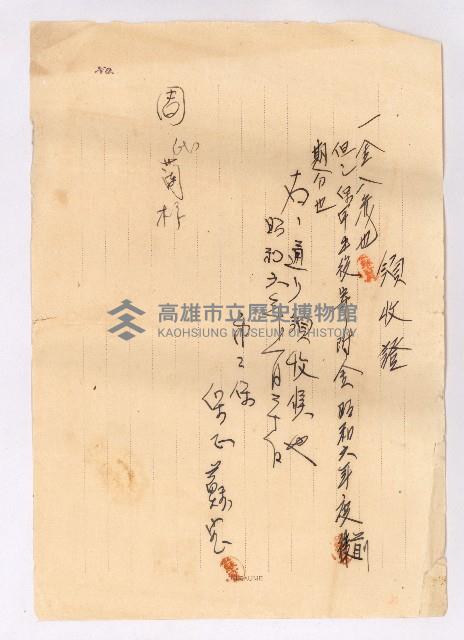 領收證
一金八円也
但シ保甲壯役寄附金昭和六年度前
期分也
右ノ通リ領收候也
昭和六年 月三十日
第二保
保正蘇
周氏蘭
高雄市立歷史博物館
KAOHSIUNG MUSEUM OF HISTORY